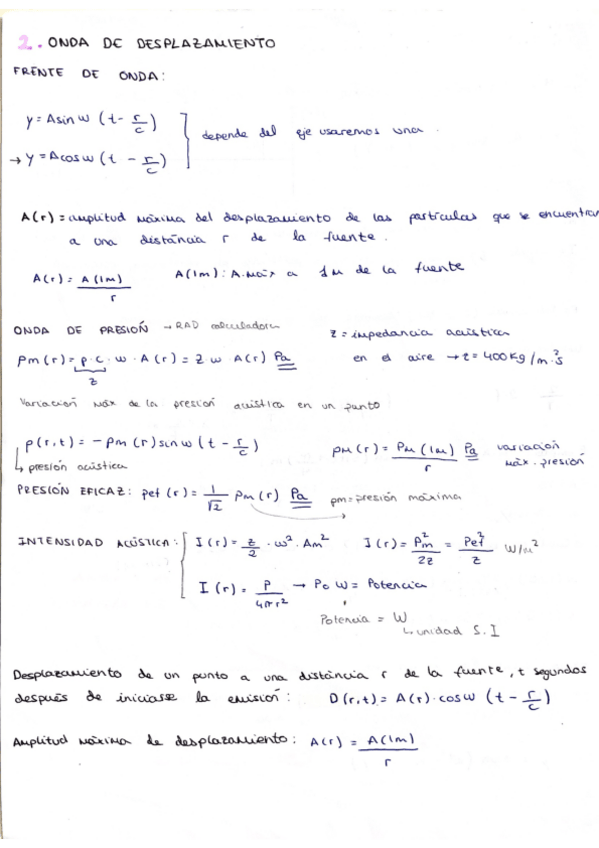 2. ONDA DE DESPLAZAMIENTO
FRENTE DE ONDA:
y = A sin w (t - r/c)
→ y = A cos w (t - r/c)
depende del eje usaremos una.
A(r) = amplitud máxima del desplazamiento de las partículas que se encuentra
a una distáncia r de la fuente.
A(r) = A(1m)/r
A(1m): A. máx a 1m de la fuente
ONDA DE PRESIÓN → RAD calculadora
z = impedancia acústica
pm(r) = ρ·c·w·A(r) = z w A(r) Pa
z
en el aire → z = 400 Kg/m²·s
Variación máx de la presión acústica en un punto
p(r,t) = -pm(r) sin w (t - r/c)
↳ presión acústica
pm(r) = Pm(1m)/r Pa variación
máx. presión
PRESIÓN EFICAZ: pef(r) = 1/√2 pm(r) Pa
pm = presión máxima
INTENSIDAD ACÚSTICA: I(r) = z/2 · w² · Am²
I(r) = Pm²/2z = Pef²/z W/m²
I(r) = P/4πr² → P o W = Potencia
Potencia = W
↳ unidad S.I
Desplazamiento de un punto a una distáncia r de la fuente, t segundos
después de iniciarse la emisión: D(r,t) = A(r)·cos w (t - r/c)
Amplitud máxima de desplazamiento: A(r) = A(1m)/r